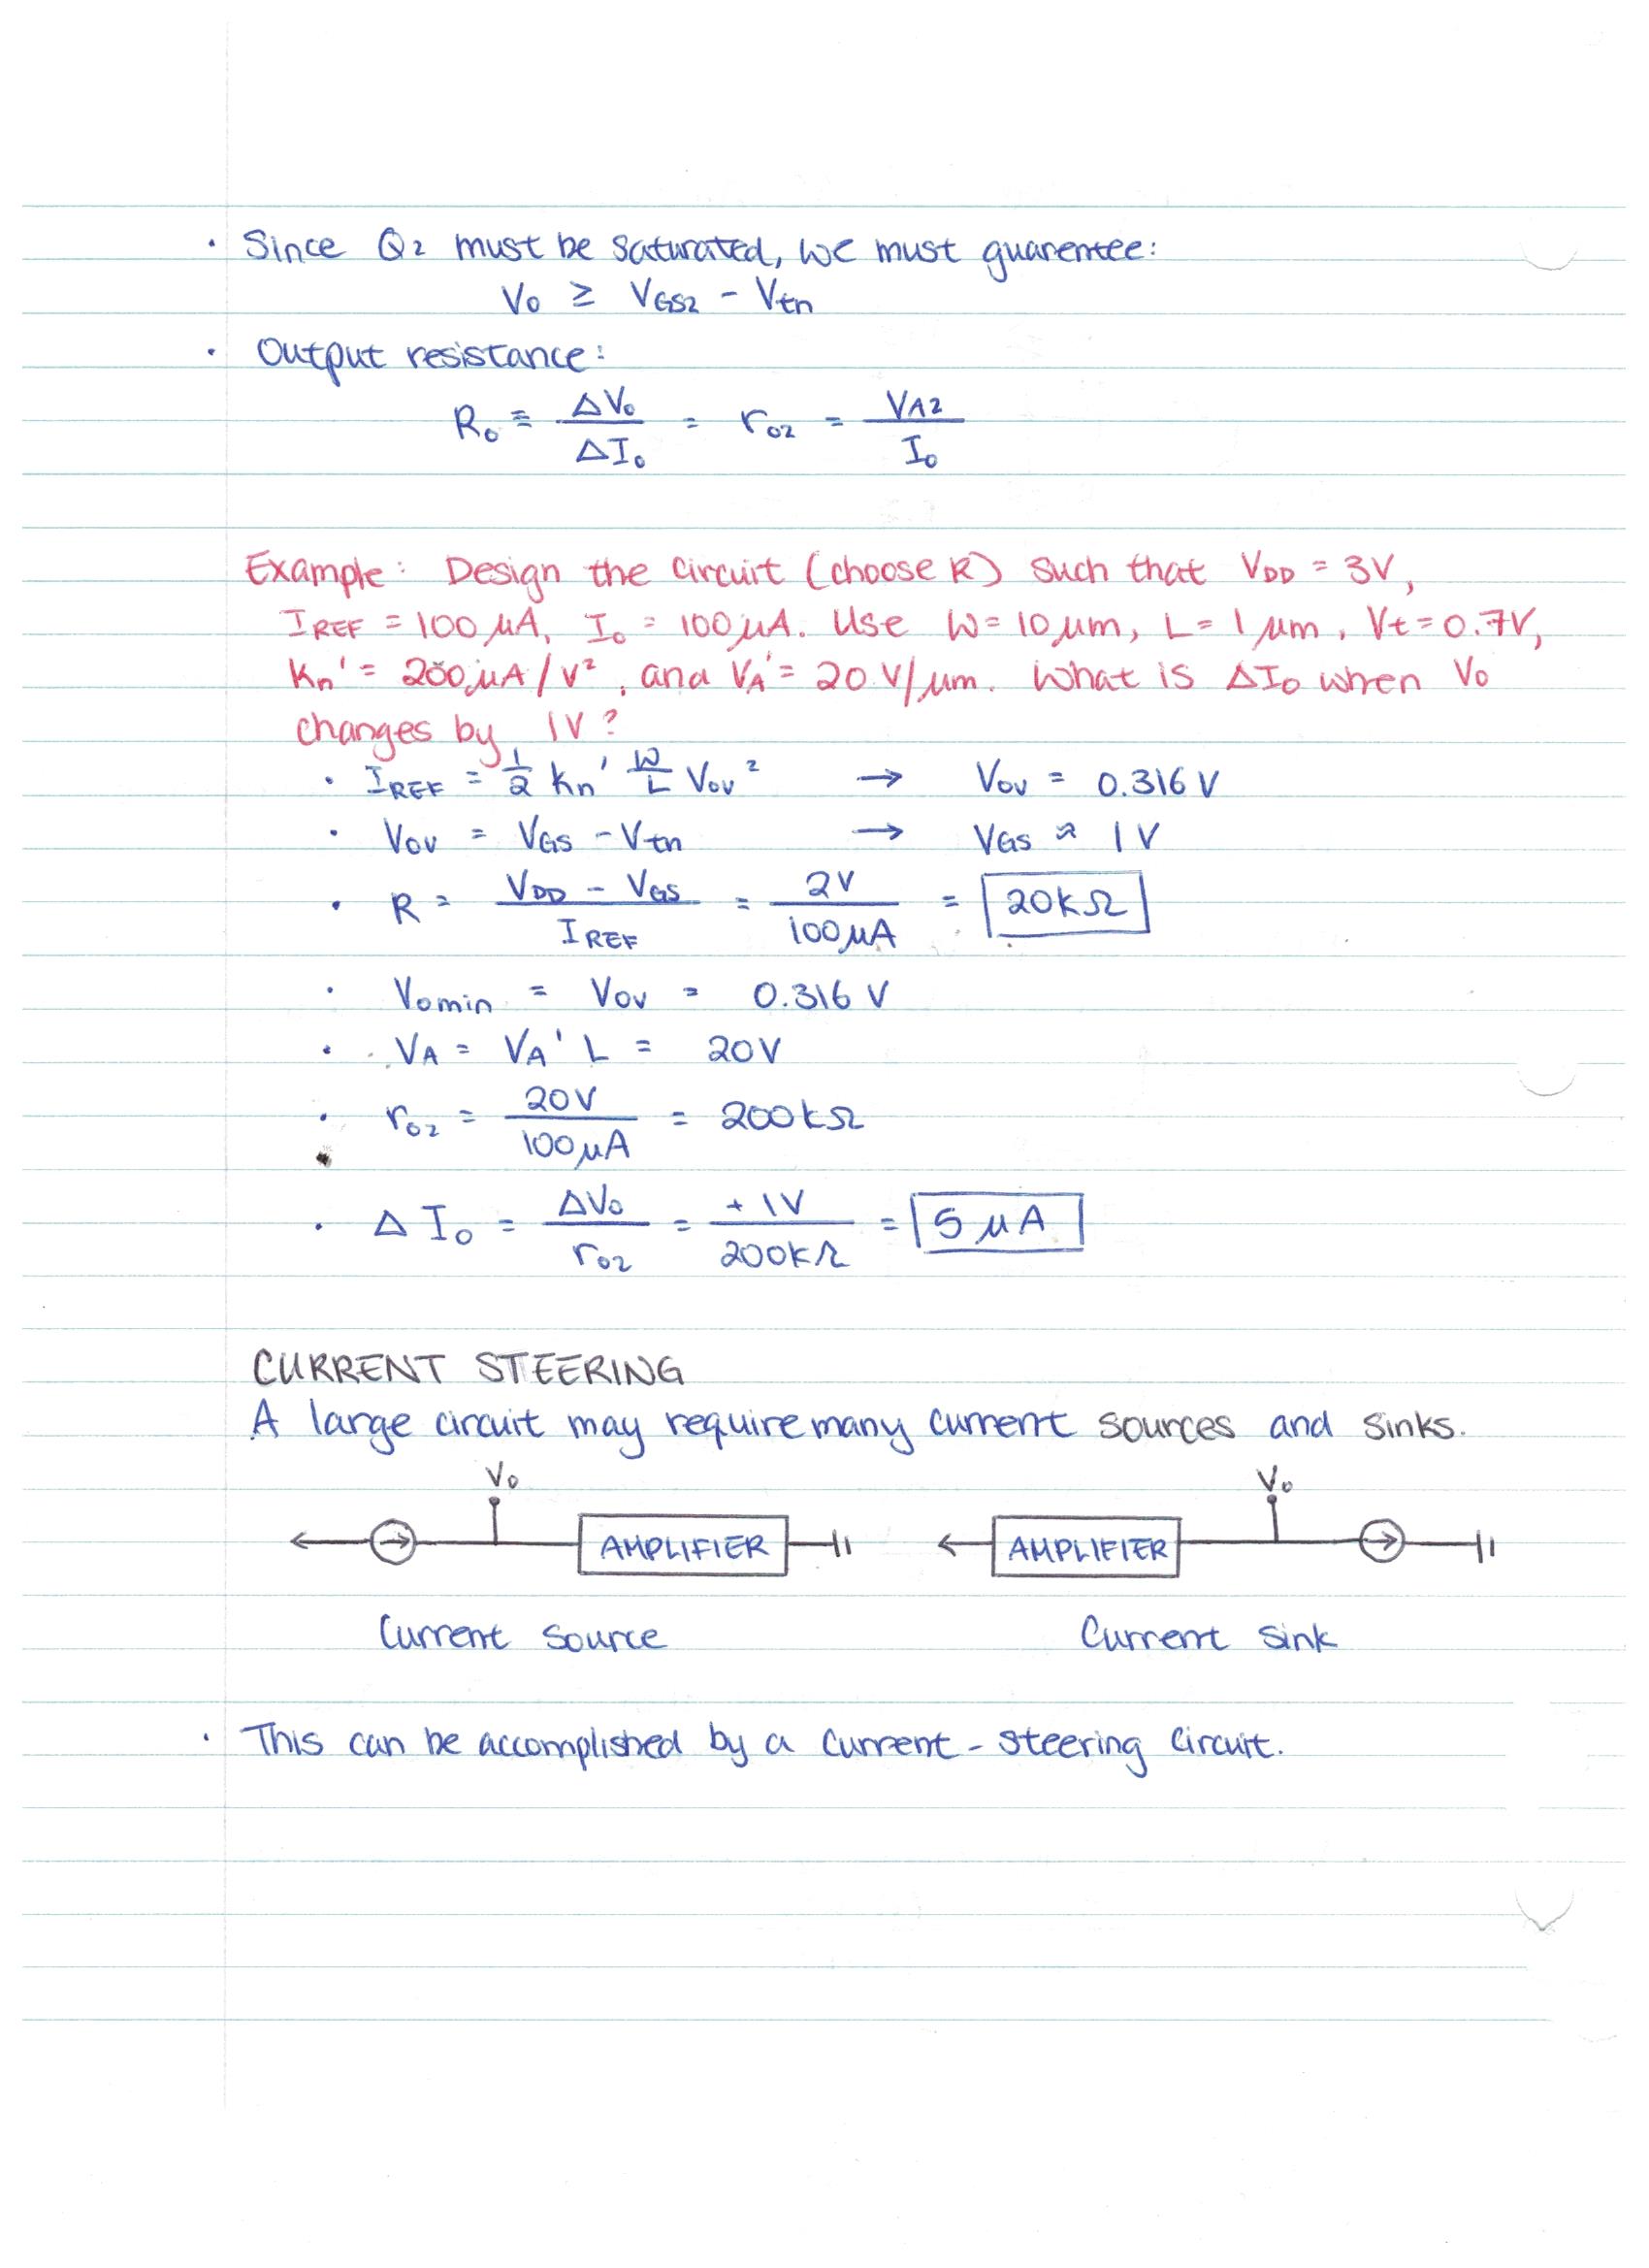 · Since Q₂ must be saturated, we must guarentee:
V₀ ≥ V_GS2 - V_tn
· Output resistance:
R₀ ≡ ΔV₀/ΔI₀ = r₀₂ = V_A2/I₀
Example: Design the circuit (choose R) such that V_DD = 3V,
I_REF = 100 μA, I₀ = 100 μA. Use W = 10 μm, L = 1 μm, Vt = 0.7V,
Kn' = 200 μA/V², and V_A' = 20 V/μm. What is ΔI₀ when V₀
changes by 1V?
· I_REF = 1/2 kn' W/L V_OV² → V_OV = 0.316 V
· V_OV = V_GS - V_tn → V_GS ≈ 1V
· R = (V_DD - V_GS)/I_REF = 2V/100 μA = 20kΩ
· V_omin = V_OV = 0.316 V
· V_A = V_A' L = 20V
· r₀₂ = 20V/100 μA = 200kΩ
· ΔI₀ = ΔV₀/r₀₂ = +1V/200kΩ = 5 μA
CURRENT STEERING
A large circuit may require many current sources and sinks.
V₀ V₀
AMPLIFIER AMPLIFIER
Current source Current sink
· This can be accomplished by a current-steering circuit.